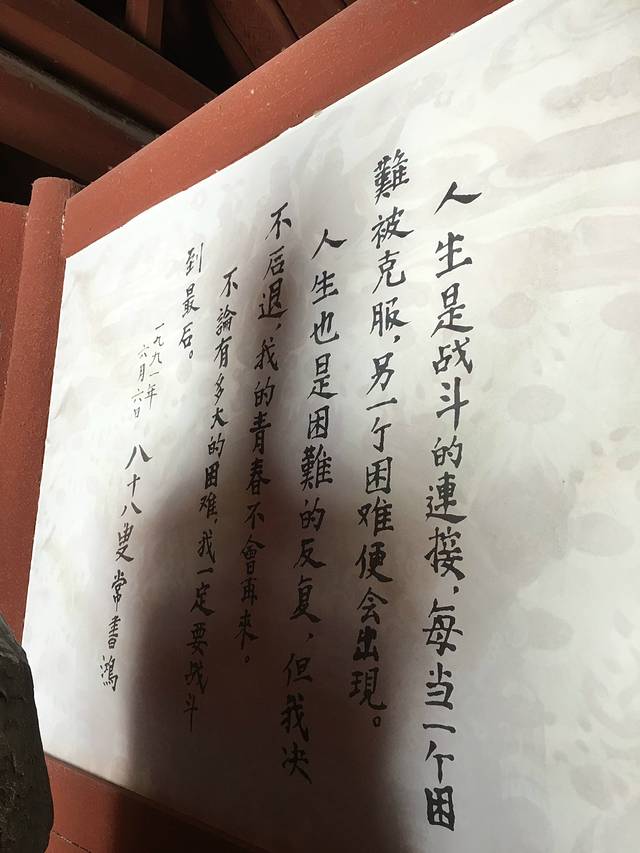 人生是战斗的連接，每当一个困
難被克服，另一个困难便会出現。
人生也是困難的反复，但我决
不后退，我的青春不會再來。
不論有多大的困难，我一定要战斗
到最后。
一九九一年
六月六日
八十八叟 常書鴻